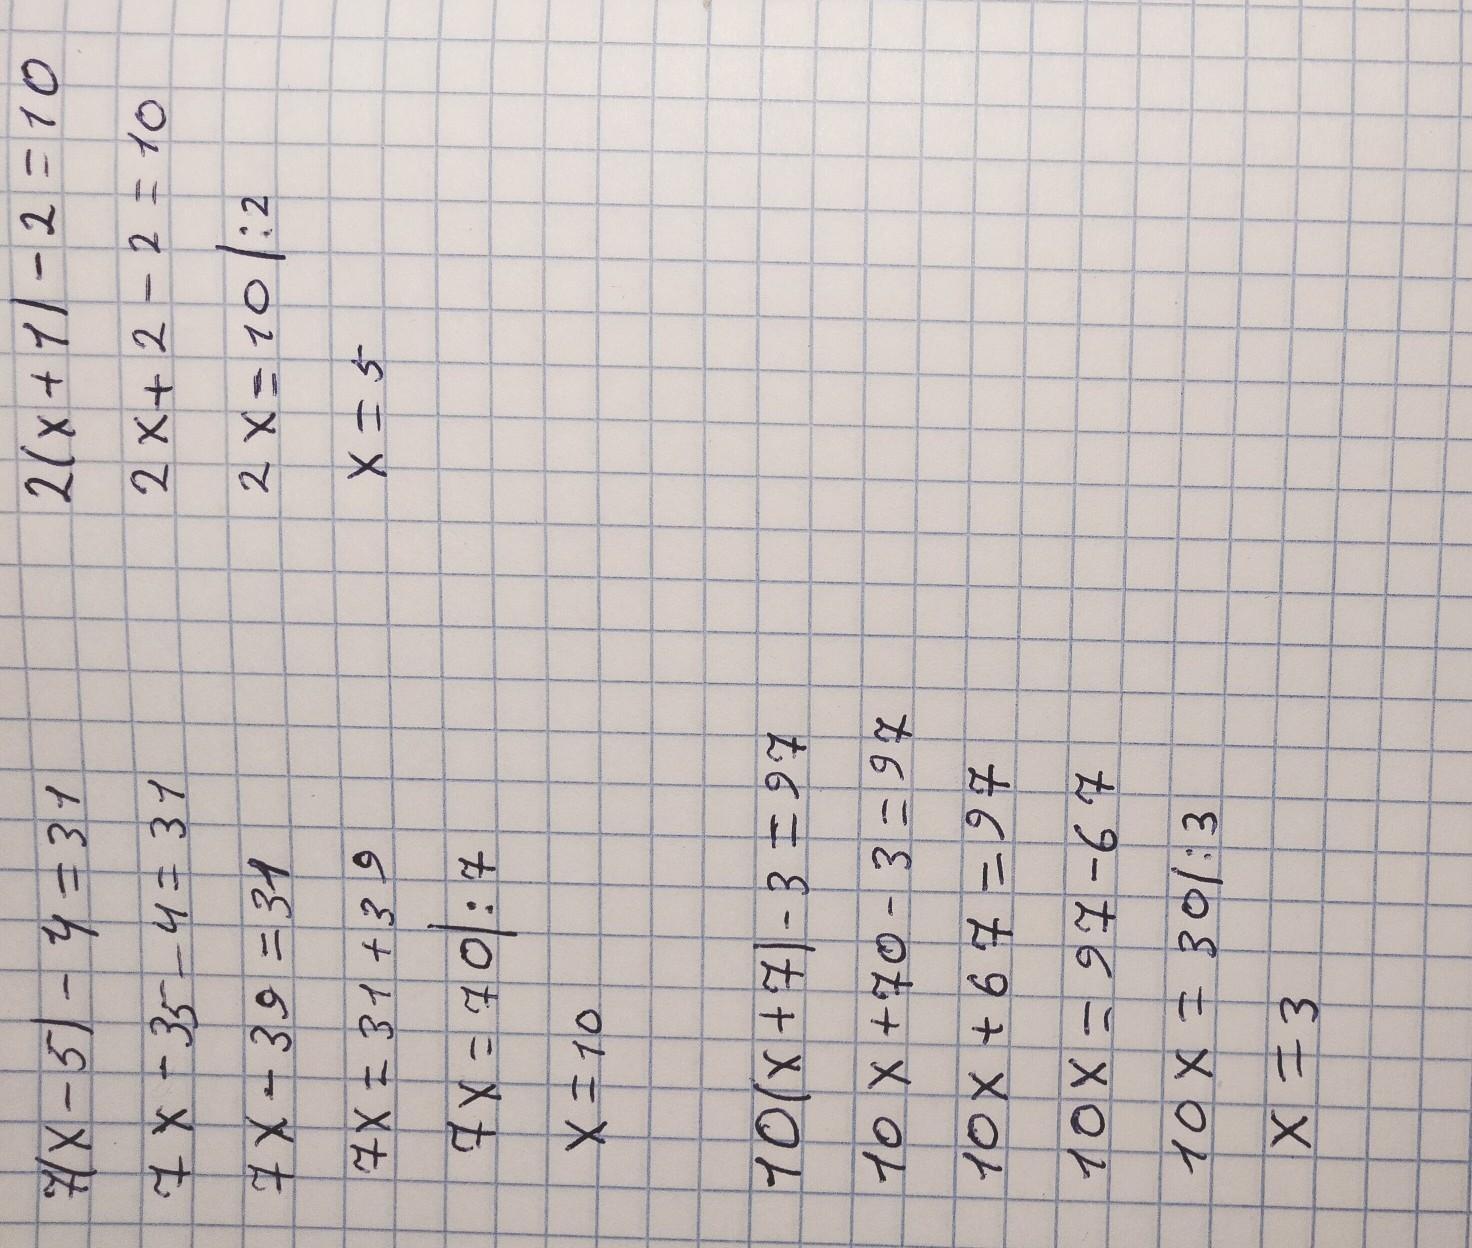 7(x-5)-4=31
7x-35-4=31
7x-39=31
7x=31+39
7x=70|:7
x=10
10(x+7)-3=97
10x+70-3=97
10x+67=97
10x=97-67
10x=30|:3
x=3
2(x+1)-2=10
2x+2-2=10
2x=10|:2
x=5